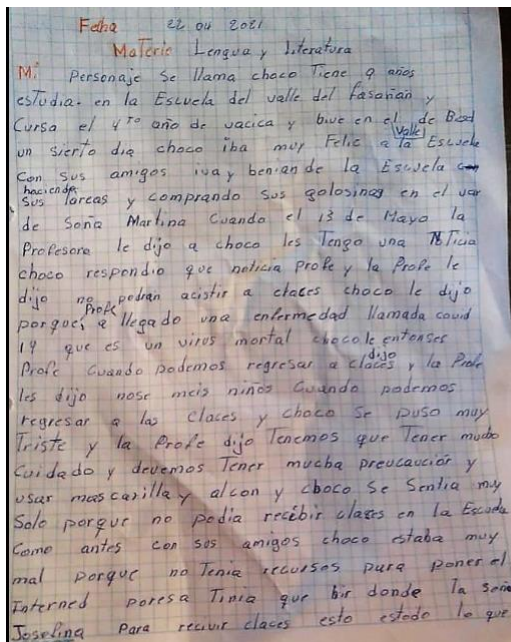 Fecha 22 04 2021
Materie Lengua y Literatura
Mi Personaje Se llama choco Tiene 9 años
esTudia. en la Escuela del valle del fasañan y
Cursa el 4 To año de vacica y bive en el de
un sierto dia choco iba muy Felic a la valle Escuela
Con Sus amigos iva y benian de la Escuela
haciendo
Sus Tareas y comprando Sus golosinas en el var
de Soña Martina Cuando el 13 de Mayo la
Profesora le dijo a choco les Tengo una NoTicia
choco respondio que noticia profe y la Profe le
dijo no podran acistir a claces choco le dijo
porque, Profe a llegado una enfermedad llamada covid
19 que es un virus mortal choco le entonses
dijo
Profe Cuando podemos regresar a claces y la Profe
les dijo nose meis niños Cuando podemos
regresar a las Claces y choco Se puso muy
Triste y la Profe dijo Tenemos que Tener mucho
Cuidado y devemos Tener mucha preucaución y
usar mascarilla y alcon y choco Se Sentia muy
Solo porque no podia recibir clases en la Escuela
Como antes con sus amigos choco estaba muy
mal porque no Tenia recursos para poner el
Interned poresa Tinia que bir donde la seño
Josefina Para recivir claces esto estodo lo que